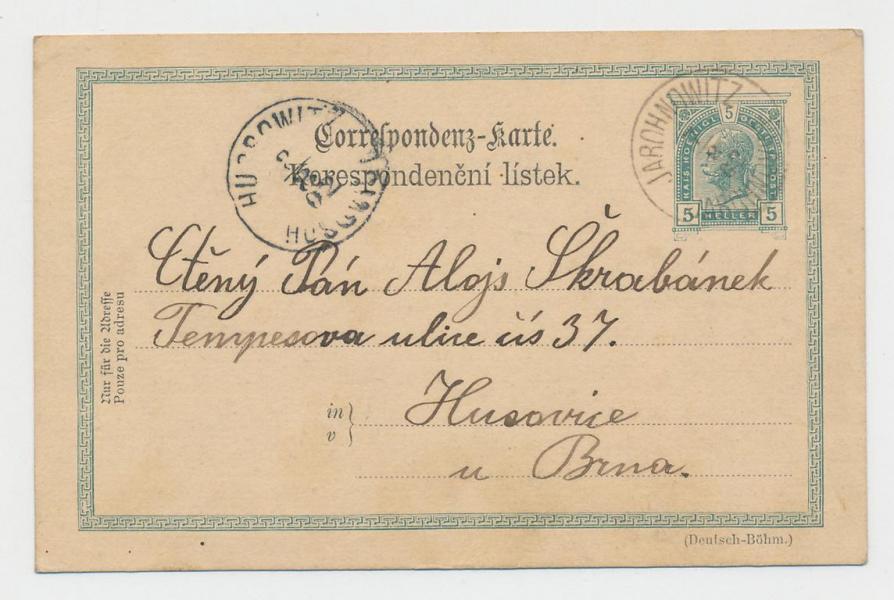 JAROHNOWITZ
HUSSOWITZ
HUSOVICE
5
KAIS. KOENIGL. OESTERR. POST
5 HELLER 5
Correspondenz-Karte.
Korespondenční lístek.
Ctěný Pán Alojs Škrabánek
Tempesova ulice čís 37.
in
v
Husovice
u Brna.
Nur für die Adresse
Pouze pro adresu
(Deutsch-Böhm.)